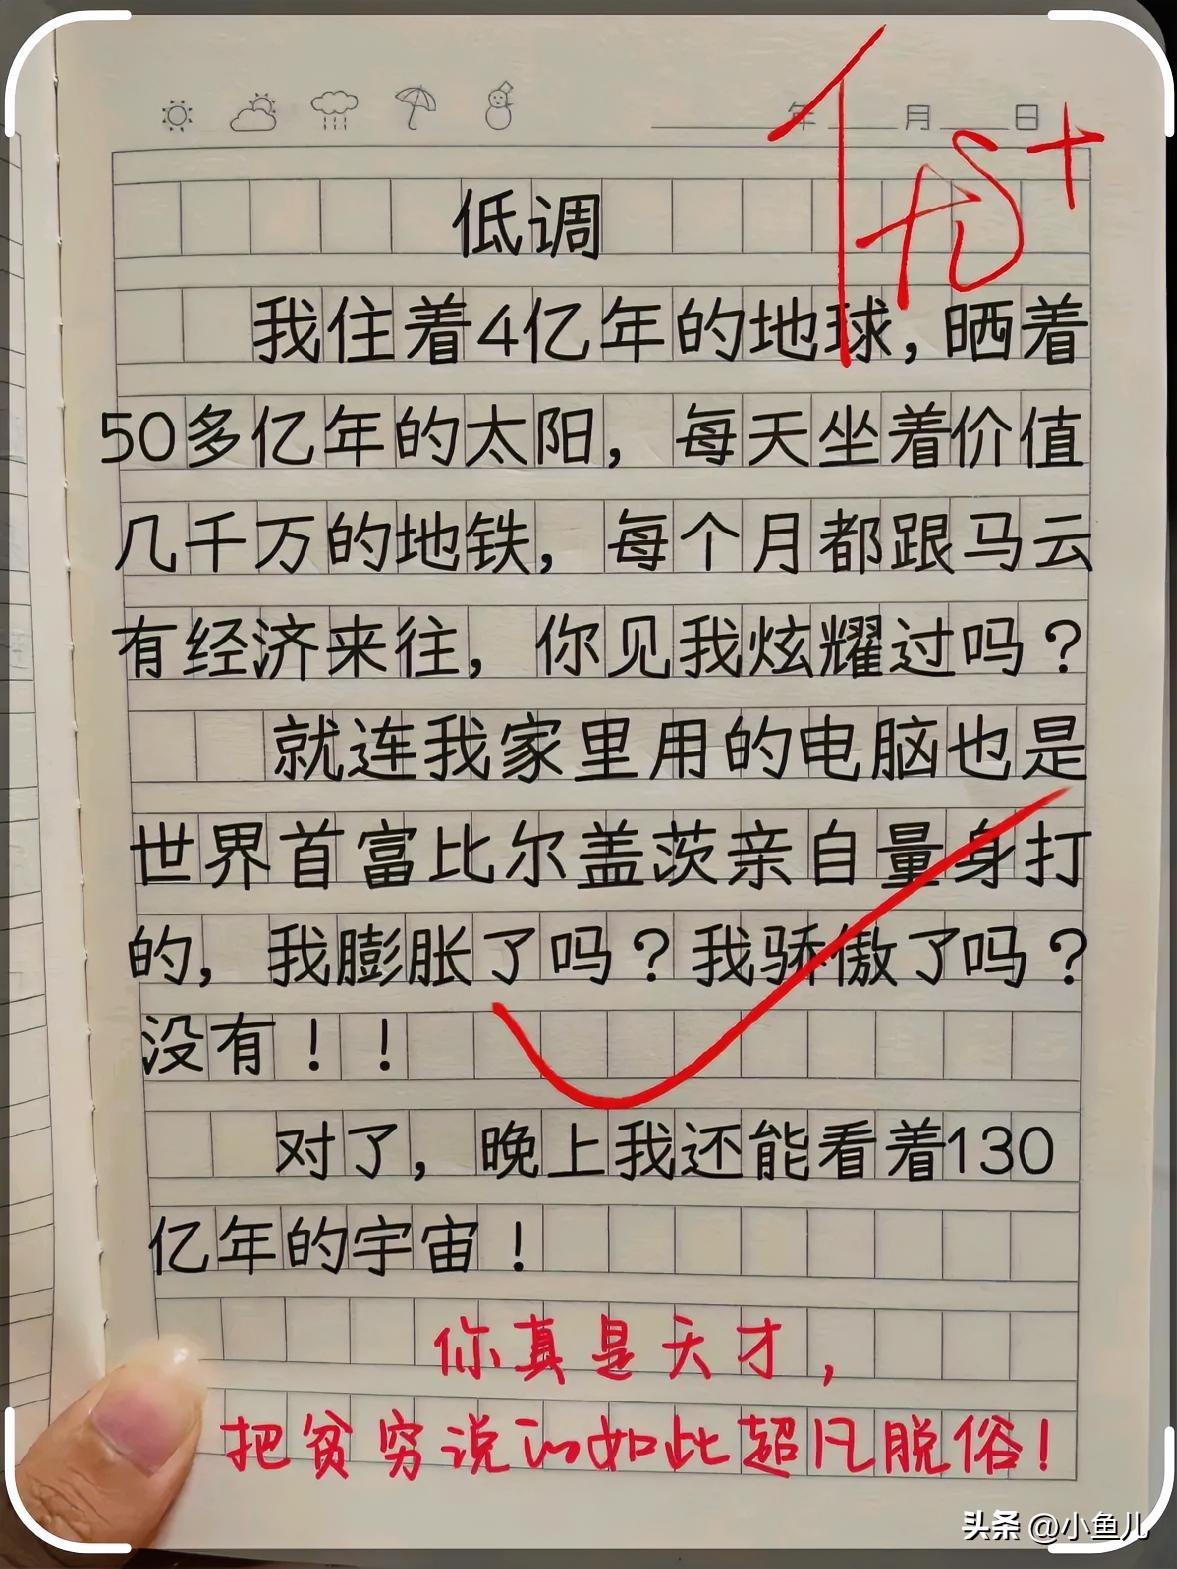 年 月 日
优+
低调
我住着4亿年的地球，晒着
50多亿年的太阳，每天坐着价值
几千万的地铁，每个月都跟马云
有经济来往，你见我炫耀过吗？
就连我家里用的电脑也是
世界首富比尔盖茨亲自量身打
的，我膨胀了吗？我骄傲了吗？
没有！！
对了，晚上我还能看着130
亿年的宇宙！
你真是天才，
把贫穷说的如此超凡脱俗！
头条 @小鱼儿